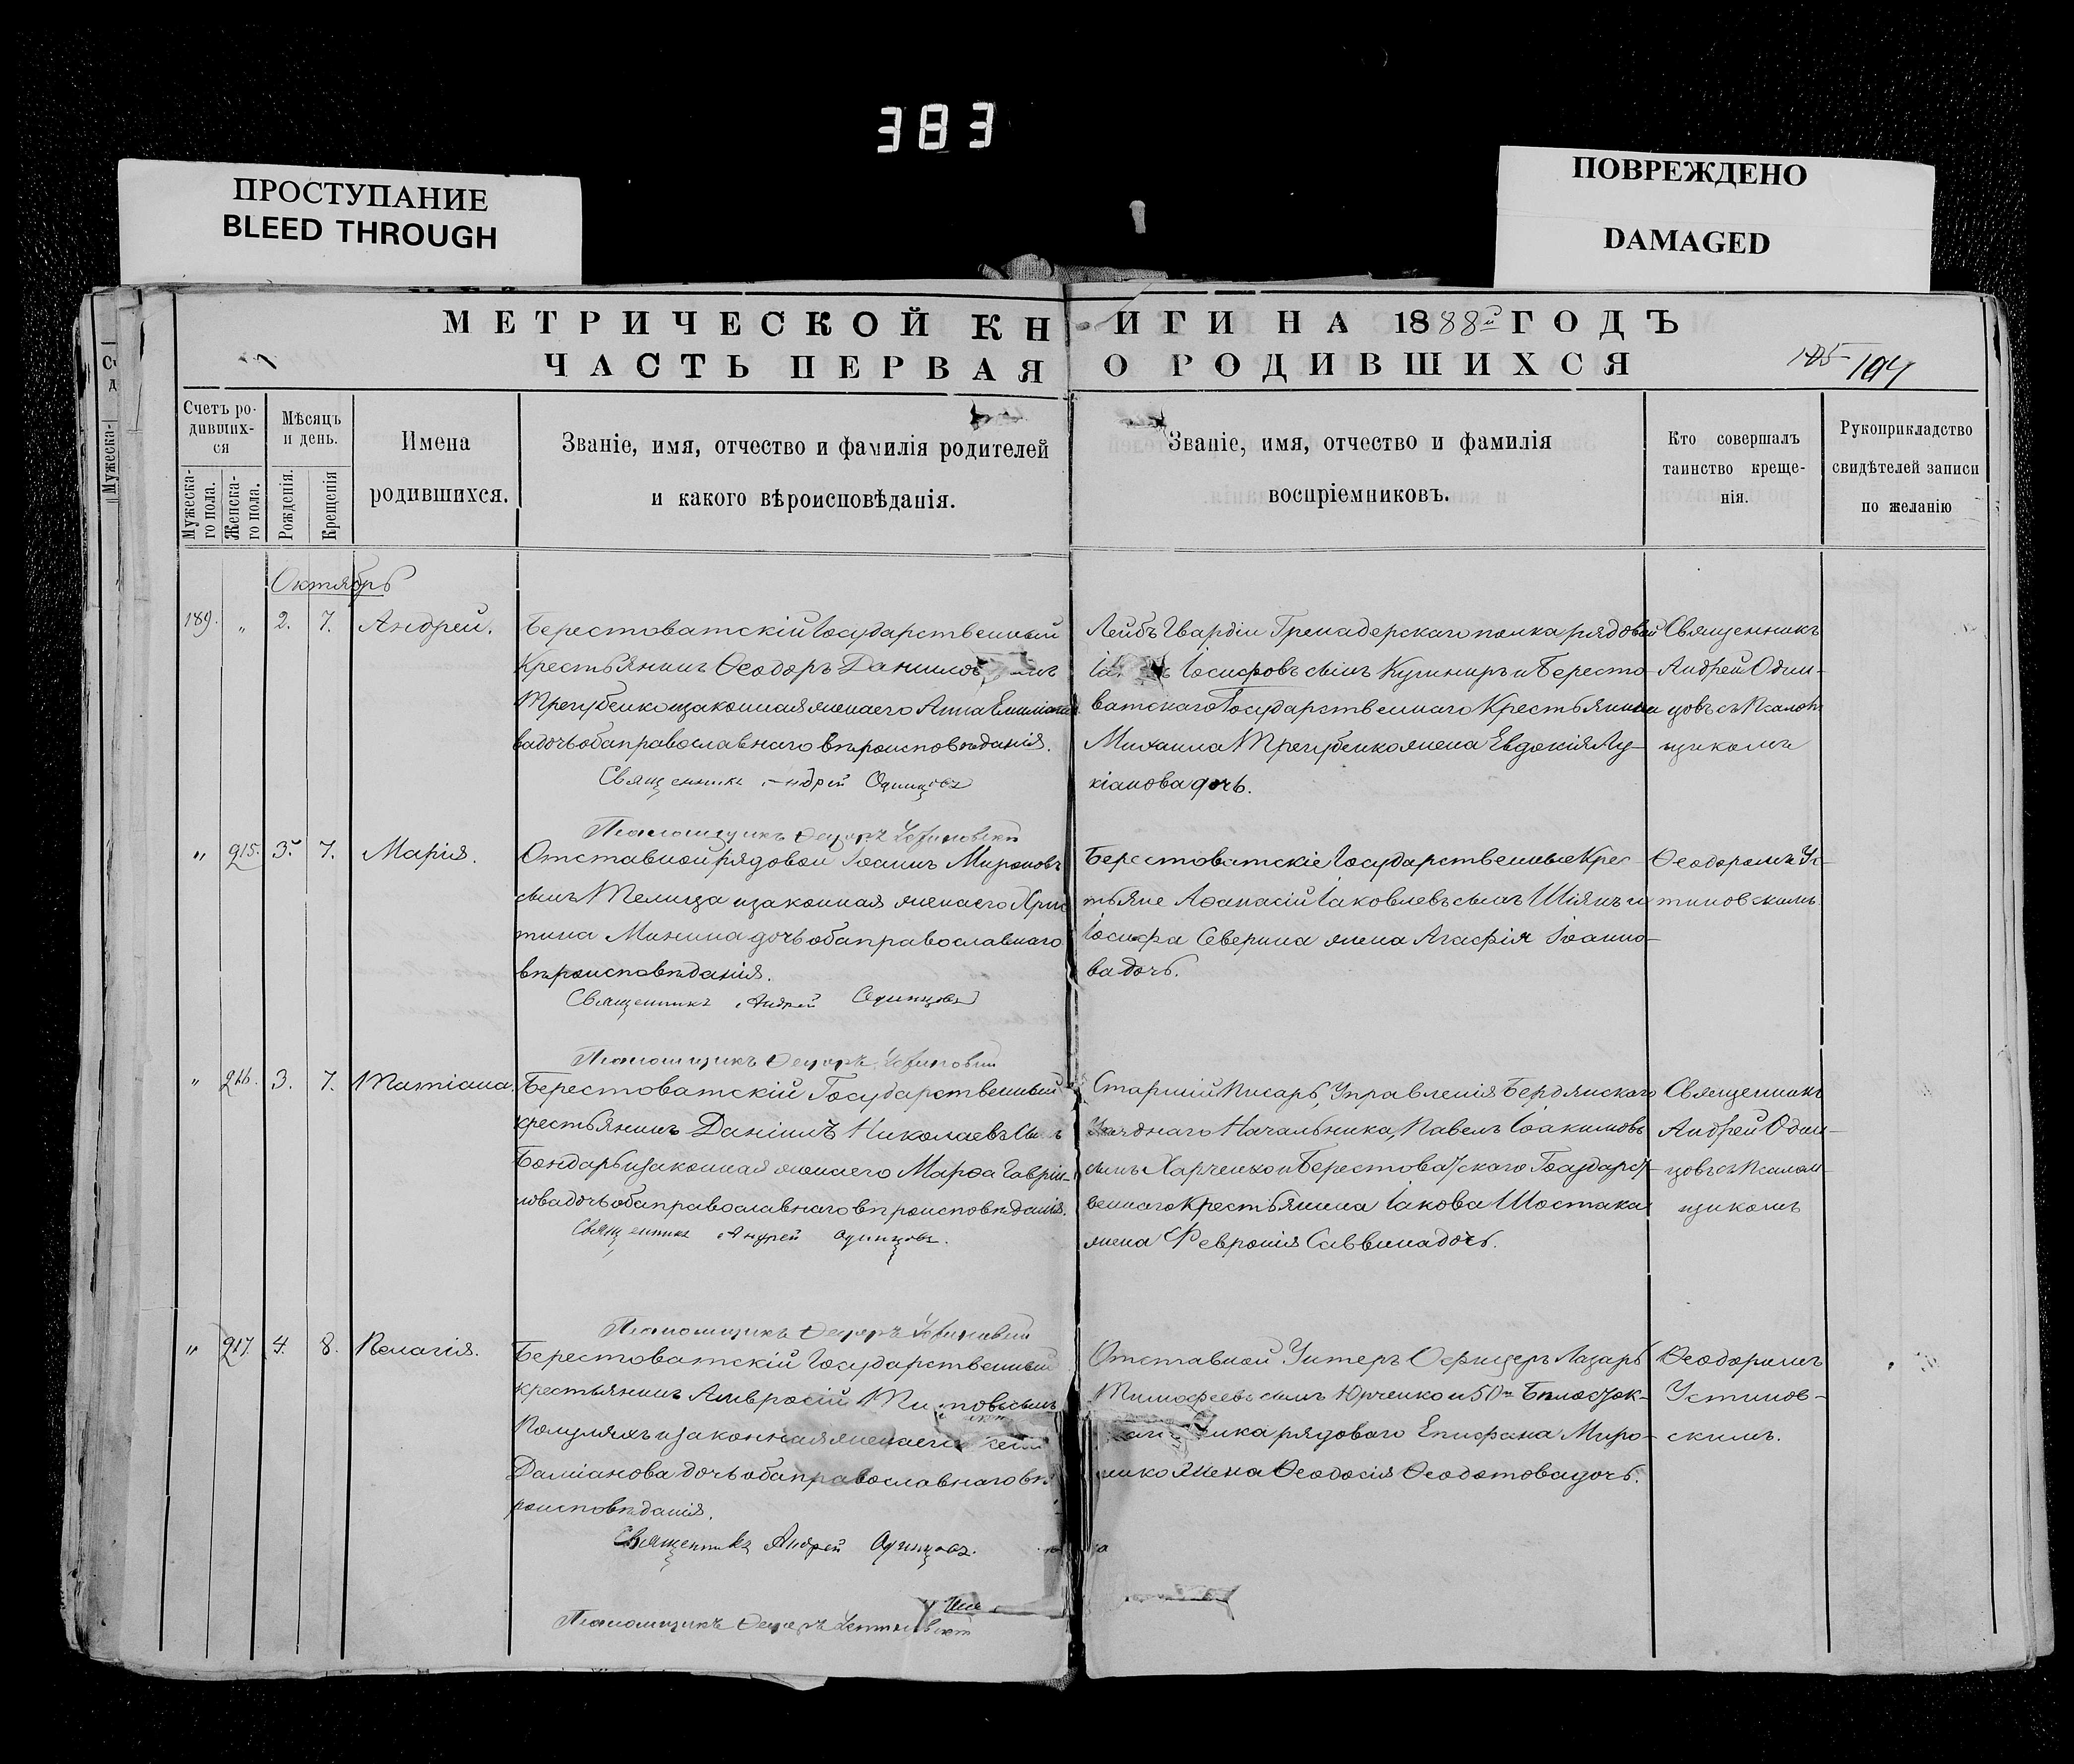 383
ПРОСТУПАНИЕ
BLEED THROUGH
ПОВРЕЖДЕНО
DAMAGED
МЕТРИЧЕСКОЙ КНИГИ НА 1888й ГОДЪ
ЧАСТЬ ПЕРВАЯ О РОДИВШИХСЯ
185 194
Счетъ ро-
дивших-
ся
Мужеска-
го пола.
Женска-
го пола.
Мѣсяцъ
и день.
Рожденія.
Крещенія
Имена
родившихся.
Званіе, имя, отчество и фамилія родителей
и какого вѣроисповѣданія.
Званіе, имя, отчество и фамилія
воспріемниковъ.
Кто совершалъ
таинство креще-
нія.
Рукоприкладство
свидѣтелей записи
по желанію
Октябрь
189. " 2. 7. Андрей.
Берестоватскій Государственный
крестьянинъ Ѳеодоръ Даниловъ
Трегубенко и законная жена его Анна Емиліано
ва дочь оба православнаго вѣроисповѣданія.
Священникъ Андрей Одинцовъ
Псаломщикъ Ѳедоръ Устиновскій
Лейбъ Гвардіи Гренадерскаго полка рядовой
Іосифовъ сынъ Кушниръ и Бересто-
ватскаго Государственнаго Крестьянина
Михаила Трегубенко жена Евдокія Лу-
кіанова дочь.
Священникъ
Андрей Один-
цовъ съ Псалом
щикомъ
" 215. 3. 7. Марія.
Отставной рядовой Іоаннъ Мироновъ
сынъ Телица и законная жена его Хрис
тина Минина дочь оба православнаго
вѣроисповѣданія.
Священникъ Андрей Одинцовъ
Псаломщикъ Ѳедоръ Устиновскій
Берестоватскіе Государственные Крес
тьяне Аѳанасій Іаковлевъ сынъ Шіянъ и
Іосифа Северина жена Агафія Іоанно-
ва дочь.
Ѳеодоромъ Ус-
тиновскимъ.
" 216. 3. 7. Татіана.
Берестоватскій Государственный
крестьянинъ Даніилъ Николаевъ сынъ
Бондарь и законная жена его Марѳа Гаврі-
лова дочь оба православнаго вѣроисповѣданія.
Священникъ Андрей Одинцовъ.
Псаломщикъ Ѳедоръ Устиновскій
Старшій Писарь, Управленія Бердянскаго
Уѣзднаго Начальника, Павелъ Іоакимовъ
сынъ Харченко и Берестоватскаго Государст-
веннаго Крестьянина Іакова Шостака
жена Февронія Саввина дочь.
Священникъ
Андрей Один-
цовъ съ Псалом-
щикомъ
" 217. 4. 8. Пелагія.
Берестоватскій Государственный
крестьянинъ Амвросій сынъ
и законная жена его
Даміанова дочь оба православнаго вѣ-
роисповѣданія.
Священникъ Андрей Одинцовъ.
Псаломщикъ Ѳедоръ Устиновскій
Отставной Унтеръ Офицеръ Лазарь
Тимофеевъ сынъ Юрченко и 50го Бѣлосток-
рядоваго Епифана Миро-
нико жена Ѳеодосія Ѳеодотова дочь.
Ѳеодоромъ
Устинов-
скимъ.